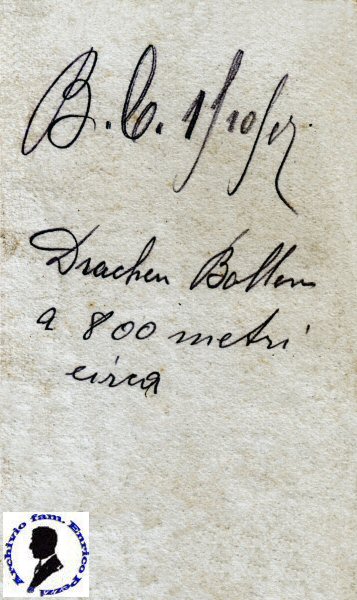 B. C. 1/10/17.
Drachen Ballon
a 800 metri
circa
Archivio fam. Enrico Pezzi